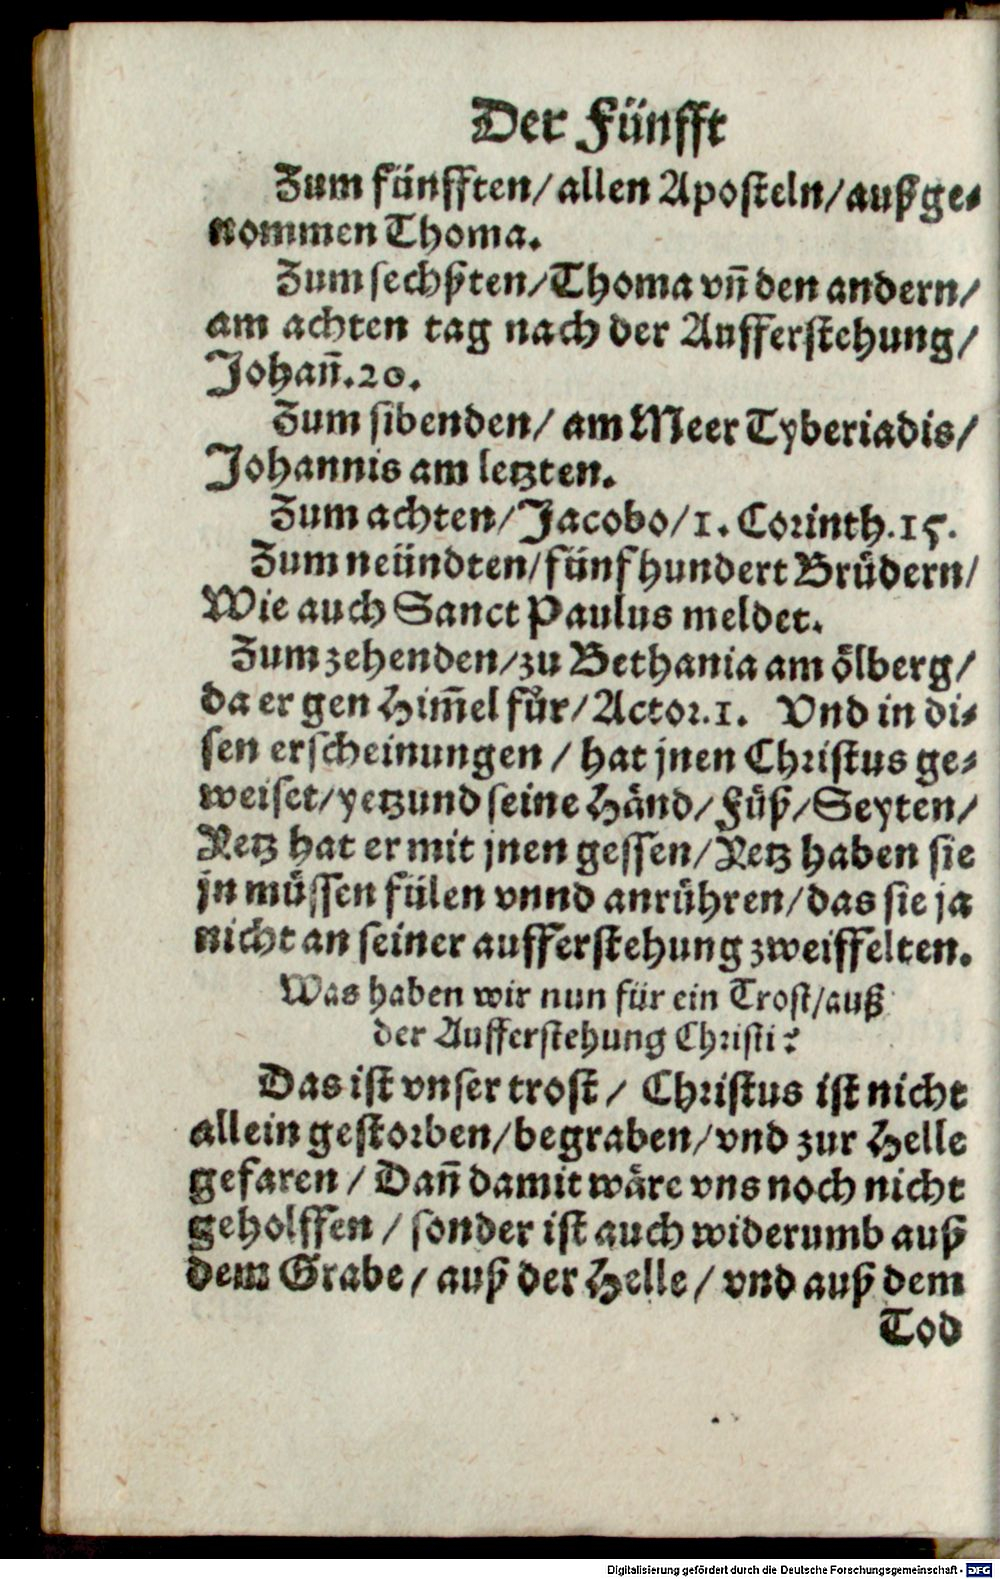 Der Fünfft
Zum fünfften/ allen Aposteln/ außge⸗
nommen Thoma.
Zum sechßten/ Thoma vñ den andern/
am achten tag nach der Aufferstehung/
Johañ.20.
Zum sibenden/ am Meer Tyberiadis/
Johannis am letzten.
Zum achten/ Jacobo/ 1. Corinth.15.
Zum neündten/ fünf hundert Brüdern/
Wie auch Sanct Paulus meldet.
Zum zehenden/ zu Bethania am ölberg/
da er gen Him̃el fůr/ Actor.1. Vnd in di⸗
sen erscheinungen / hat jnen Christus ge⸗
weiset/ yetzund seine Händ/ Füß/ Seyten/
Yetz hat er mit jnen gessen/ Yetz haben sie
jn müssen fülen vnnd anrühren/ das sie ja
nicht an seiner aufferstehung zweiffelten.
Was haben wir nun für ein Trost/ auß
der Aufferstehung Christi?
Das ist vnser trost / Christus ist nicht
allein gestorben/ begraben/ vnd zur Helle
gefaren / Dañ damit wäre vns noch nicht
geholffen / sonder ist auch widerumb auß
dem Grabe / auß der Helle / vnd auß dem
Tod
Digitalisierung gefördert durch die Deutsche Forschungsgemeinschaft - DFG